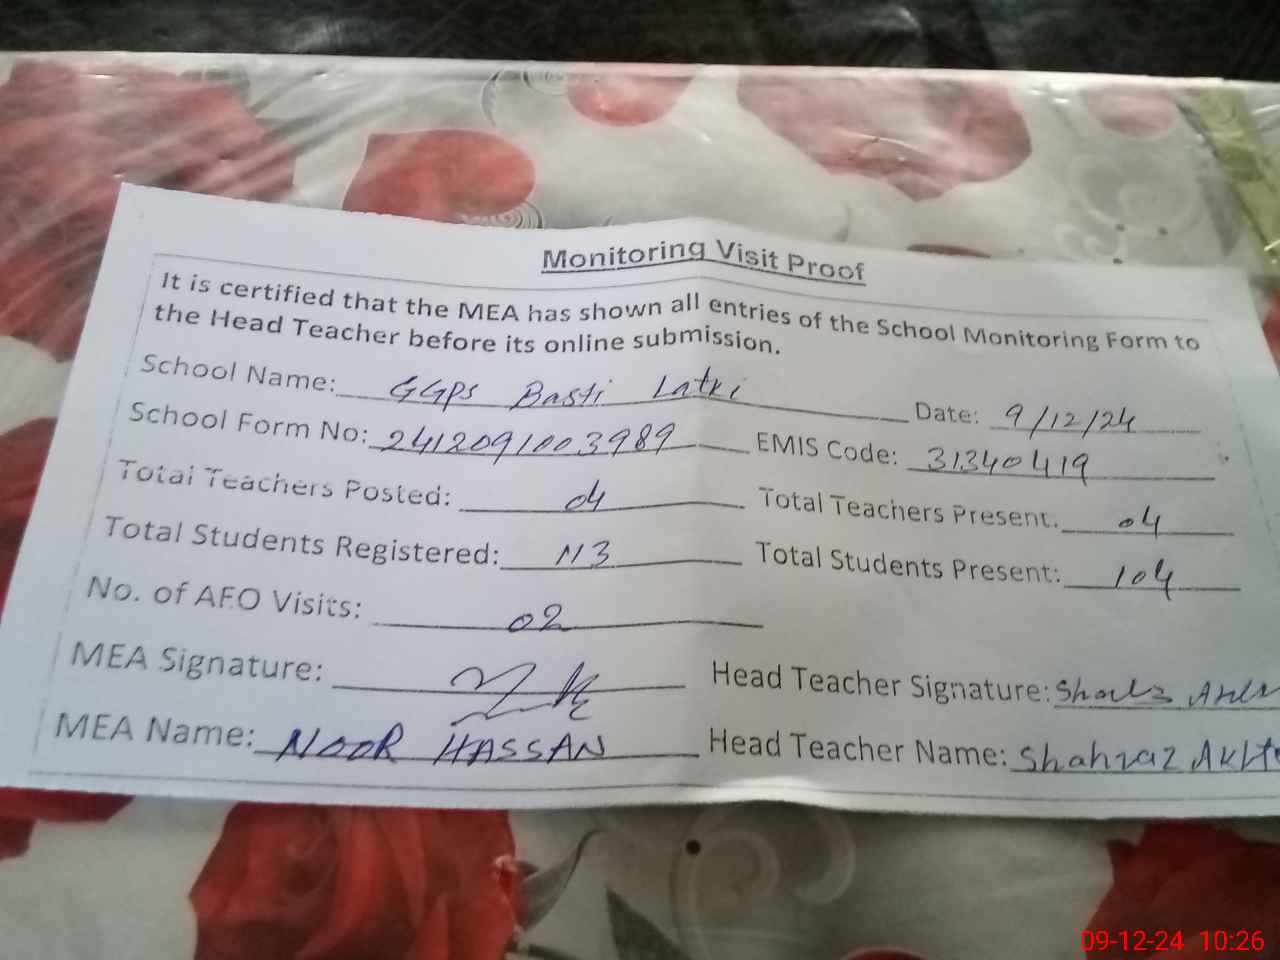 Monitoring Visit Proof
It is certified that the MEA has shown all entries of the School Monitoring Form to
the Head Teacher before its online submission.
School Name: GGPS Basti Latki Date: 9/12/24
School Form No: 2412091003989 EMIS Code: 31340419
Total Teachers Posted: 04 Total Teachers Present: 04
Total Students Registered: 113 Total Students Present: 104
No. of AEO Visits: 02
MEA Signature: Head Teacher Signature:
MEA Name: NOOR HASSAN Head Teacher Name: Shahnaz
09-12-24 10:26